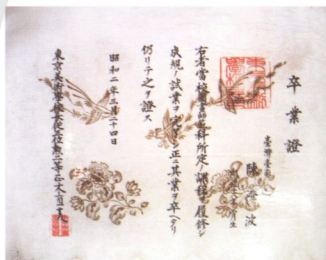 卒業證
臺灣臺
陳 波
生
右者當校 師 科所定ノ課程ヲ履修シ
成規ノ試業ヲ 正ニ其業ヲ卒ヘタリ
仍リテ之ヲ證ス
昭和二年三月二十四日
東京美術學校長從三位勲二等正木直彦